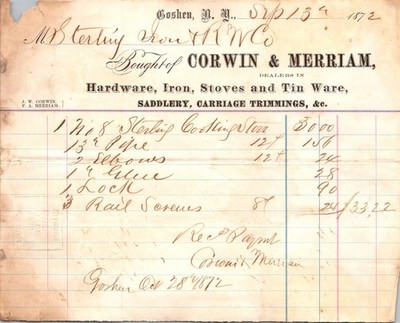 Goshen, N. Y., Sep 13th 1872
M Sterling Iron & RW Co
Bought of CORWIN & MERRIAM,
DEALERS IN
Hardware, Iron, Stoves and Tin Ware,
SADDLERY, CARRIAGE TRIMMINGS, &c.
J. W. CORWIN.
F. A. MERRIAM.
1 No 8 Sterling Cooking Stove 30 00
13 " Pipe 12 1 56
2 Elbows 12 24
1 " Glue 28
1 Lock 90
3 Rail Screws 8 24 / 33,22
Rec Paymt
Corwin & Merriam
Goshen Oct 28th 1872